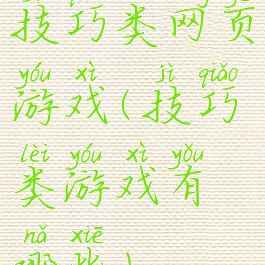 技巧类网页
yóu xì jì qiǎo
游戏(技巧
lèi yóu xì yǒu
类游戏有
nǎ xiē
哪些)